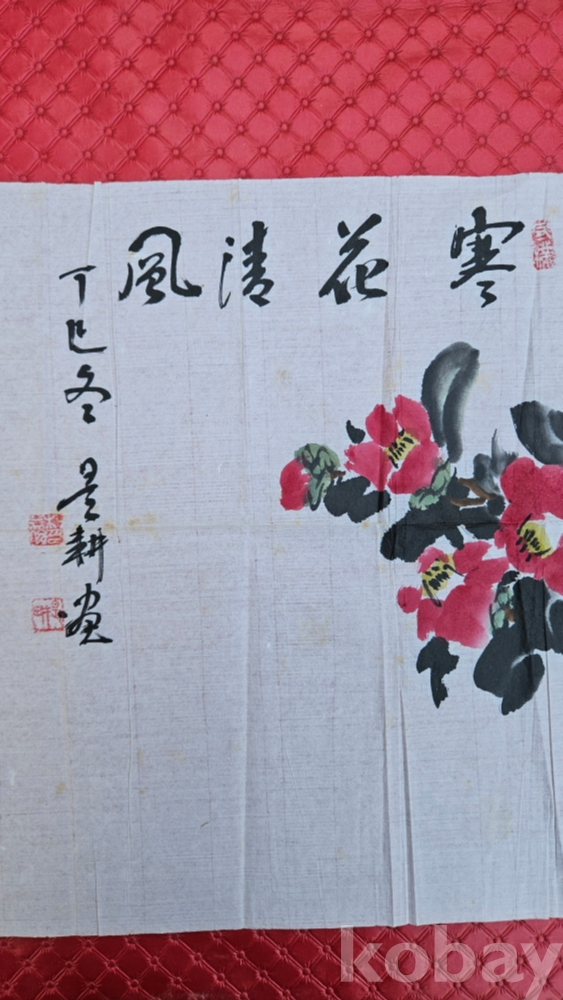 寒花清風
丁巳冬 耕画
kobay